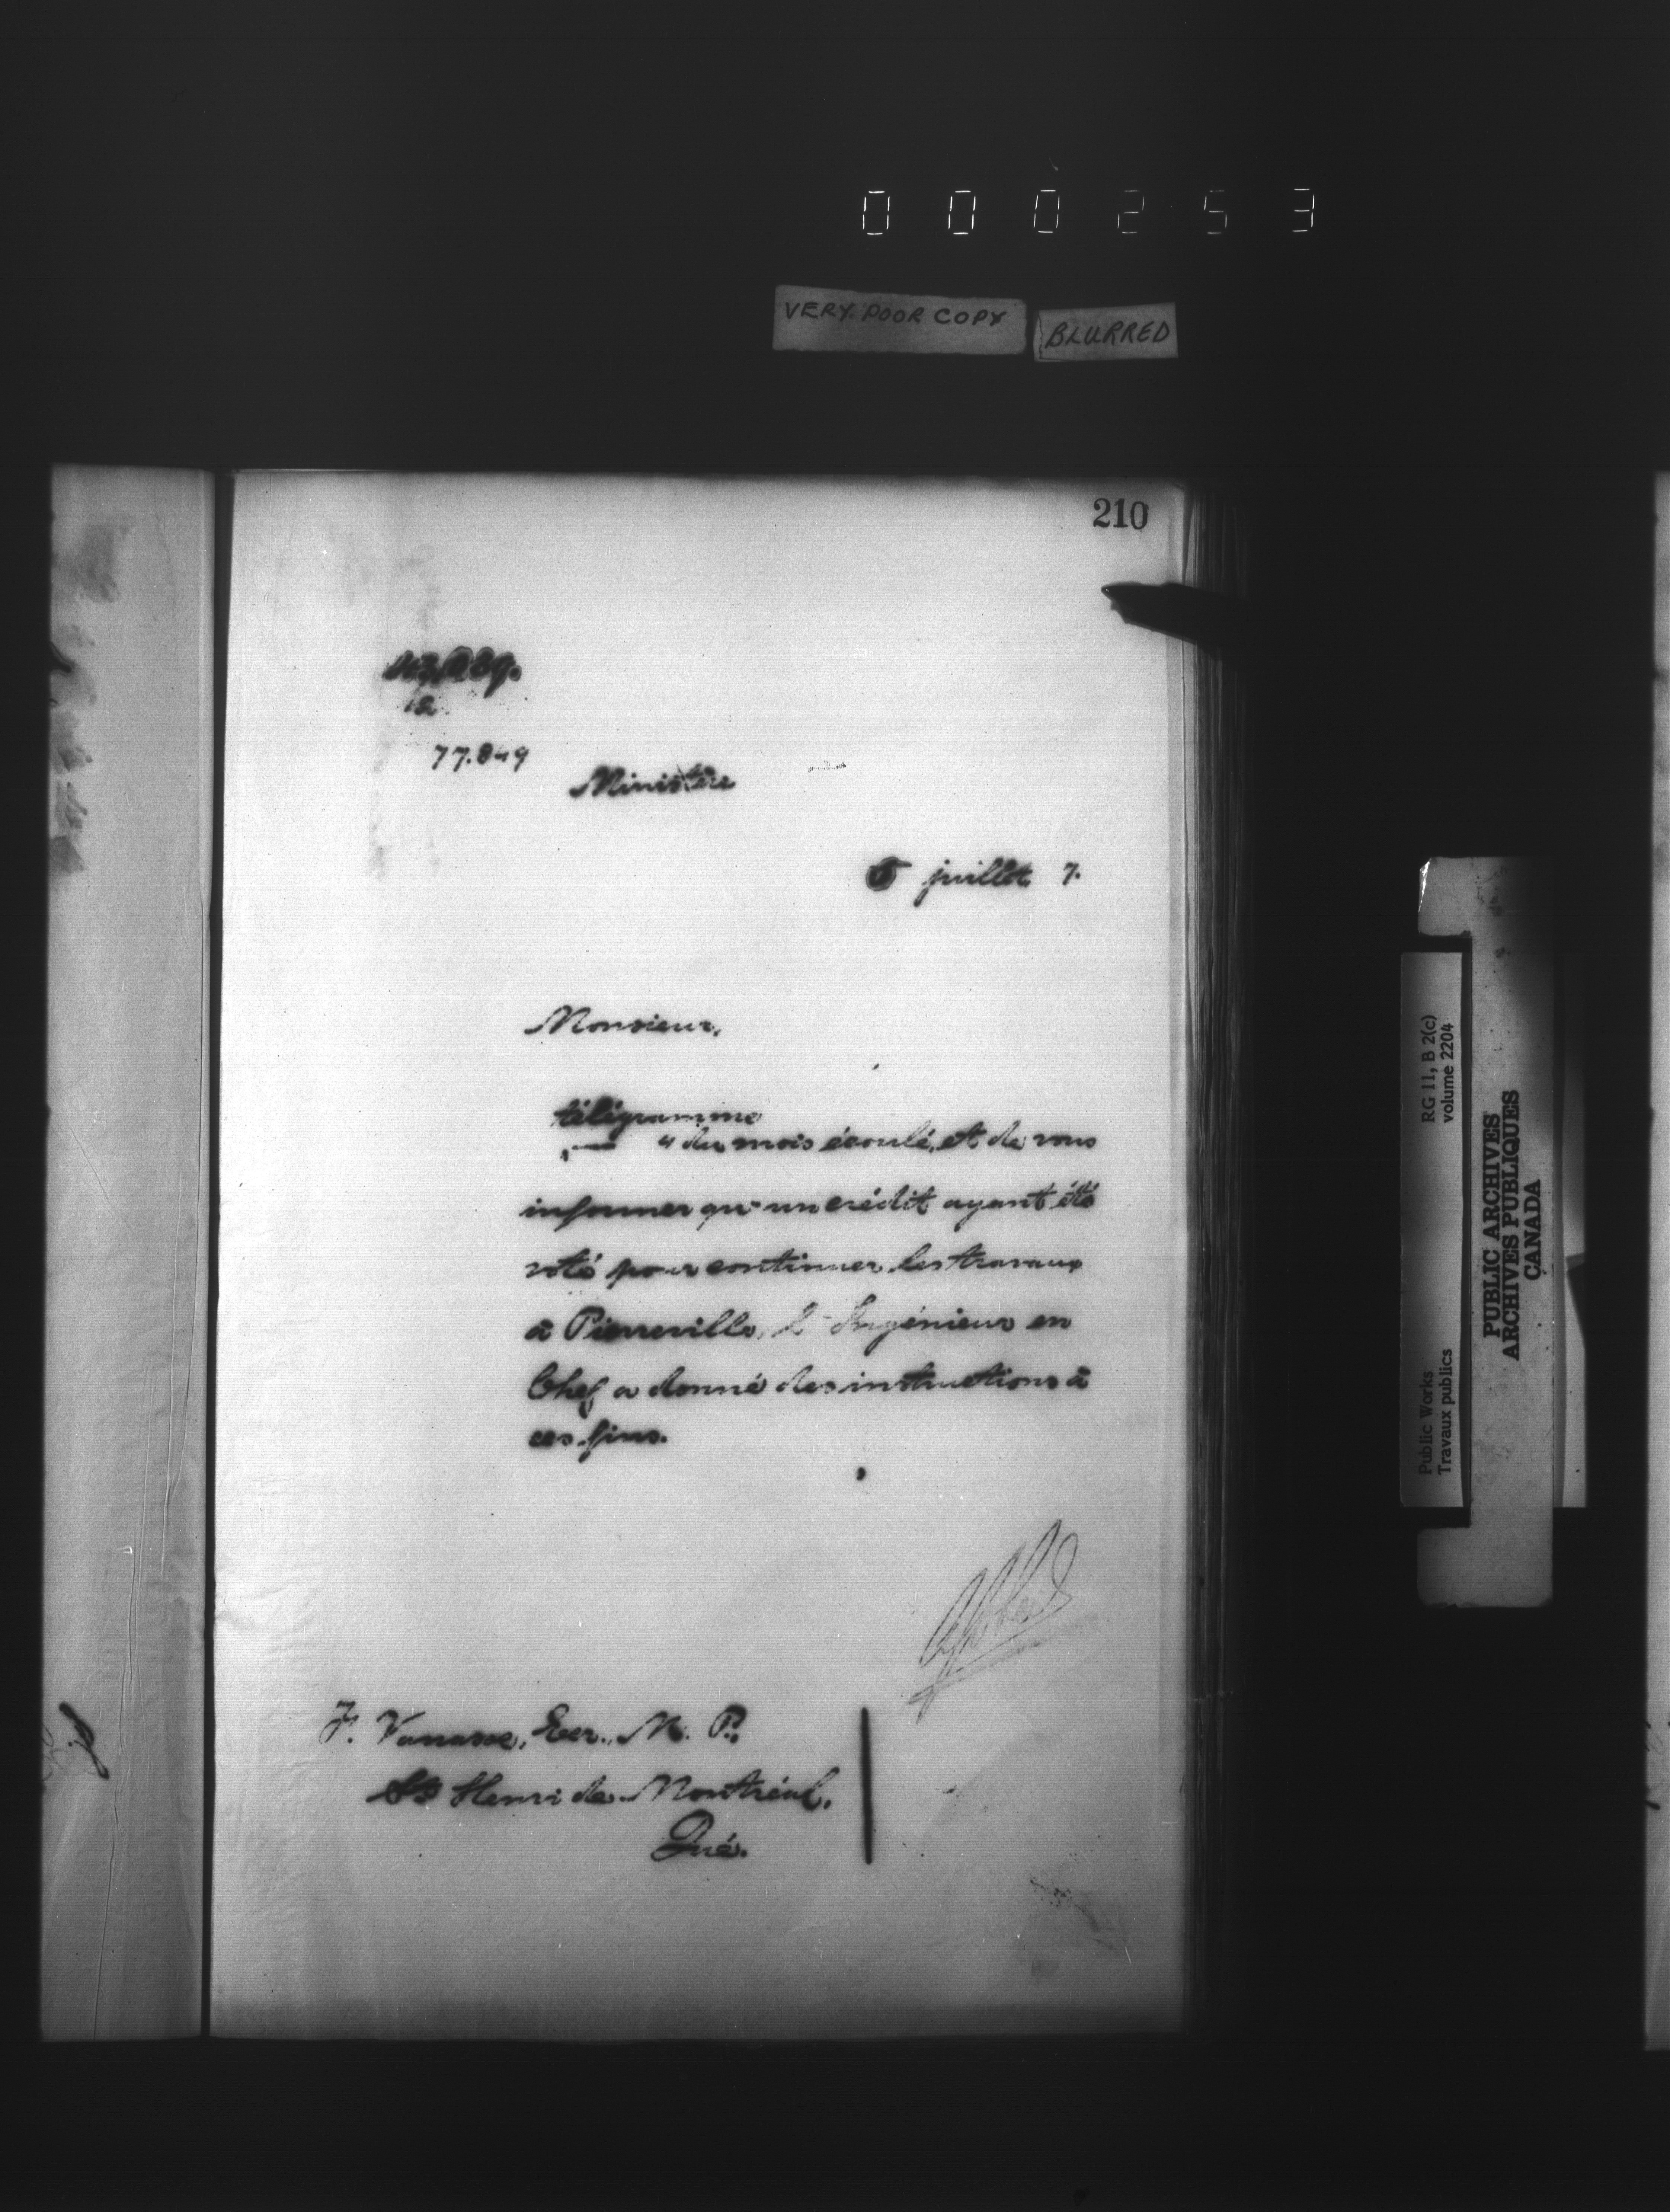 000253
VERY POOR COPY
BLURRED
210
77.849
Ministère
juillet 7.
Monsieur,
télégramme
" du mois écoulé, et de vous
informer qu'un crédit ayant été
voté pour continuer les travaux
à Pierreville, l'Ingénieur en
Chef a donné des instructions à
ces fins.
F. Vanasse, Ecr., M. P.,
St Henri de Montréal,
Qué.
Public Works
Travaux publics
RG 11, B 2(c)
volume 2204
PUBLIC ARCHIVES
ARCHIVES PUBLIQUES
CANADA